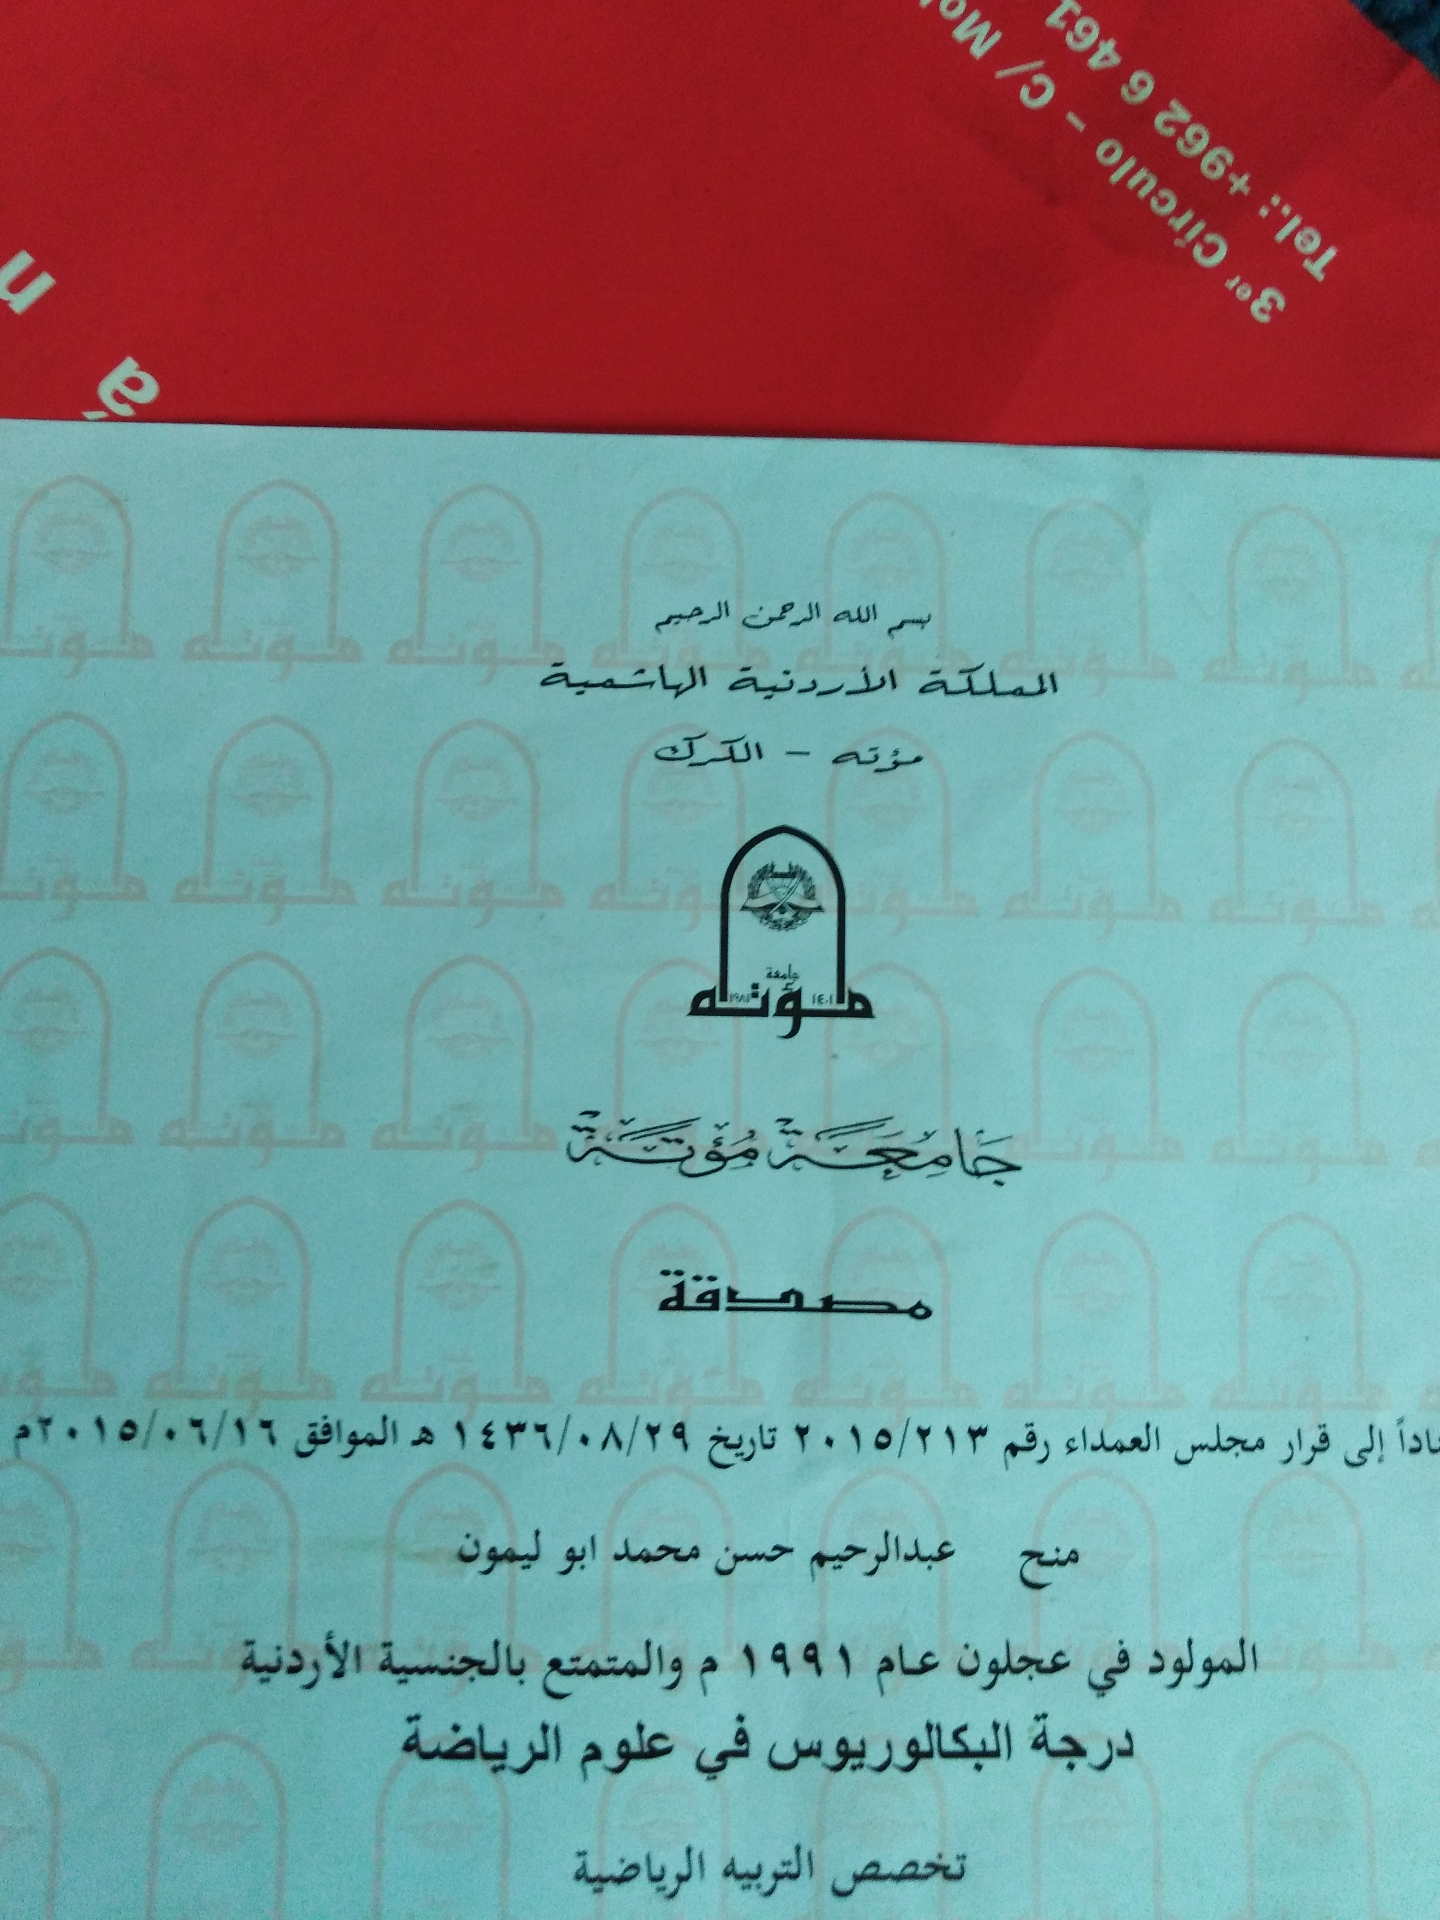 3er Círculo – C/ Mo
Tel.: +962 6 461
n
á
بسم الله الرحمن الرحيم
المملكة الأردنية الهاشمية
مؤته – الكرك
جامعة
١٩٨١ ١٤٠١
مؤته
جَامِعَة مُؤتَة
مصدقة
ناداً إلى قرار مجلس العمداء رقم ٢٠١٥/٢١٣ تاريخ ١٤٣٦/٠٨/٢٩ هـ الموافق ٢٠١٥/٠٦/١٦م
منح عبدالرحيم حسن محمد ابو ليمون
المولود في عجلون عام ١٩٩١ م والمتمتع بالجنسية الأردنية
درجة البكالوريوس في علوم الرياضة
تخصص التربيه الرياضية